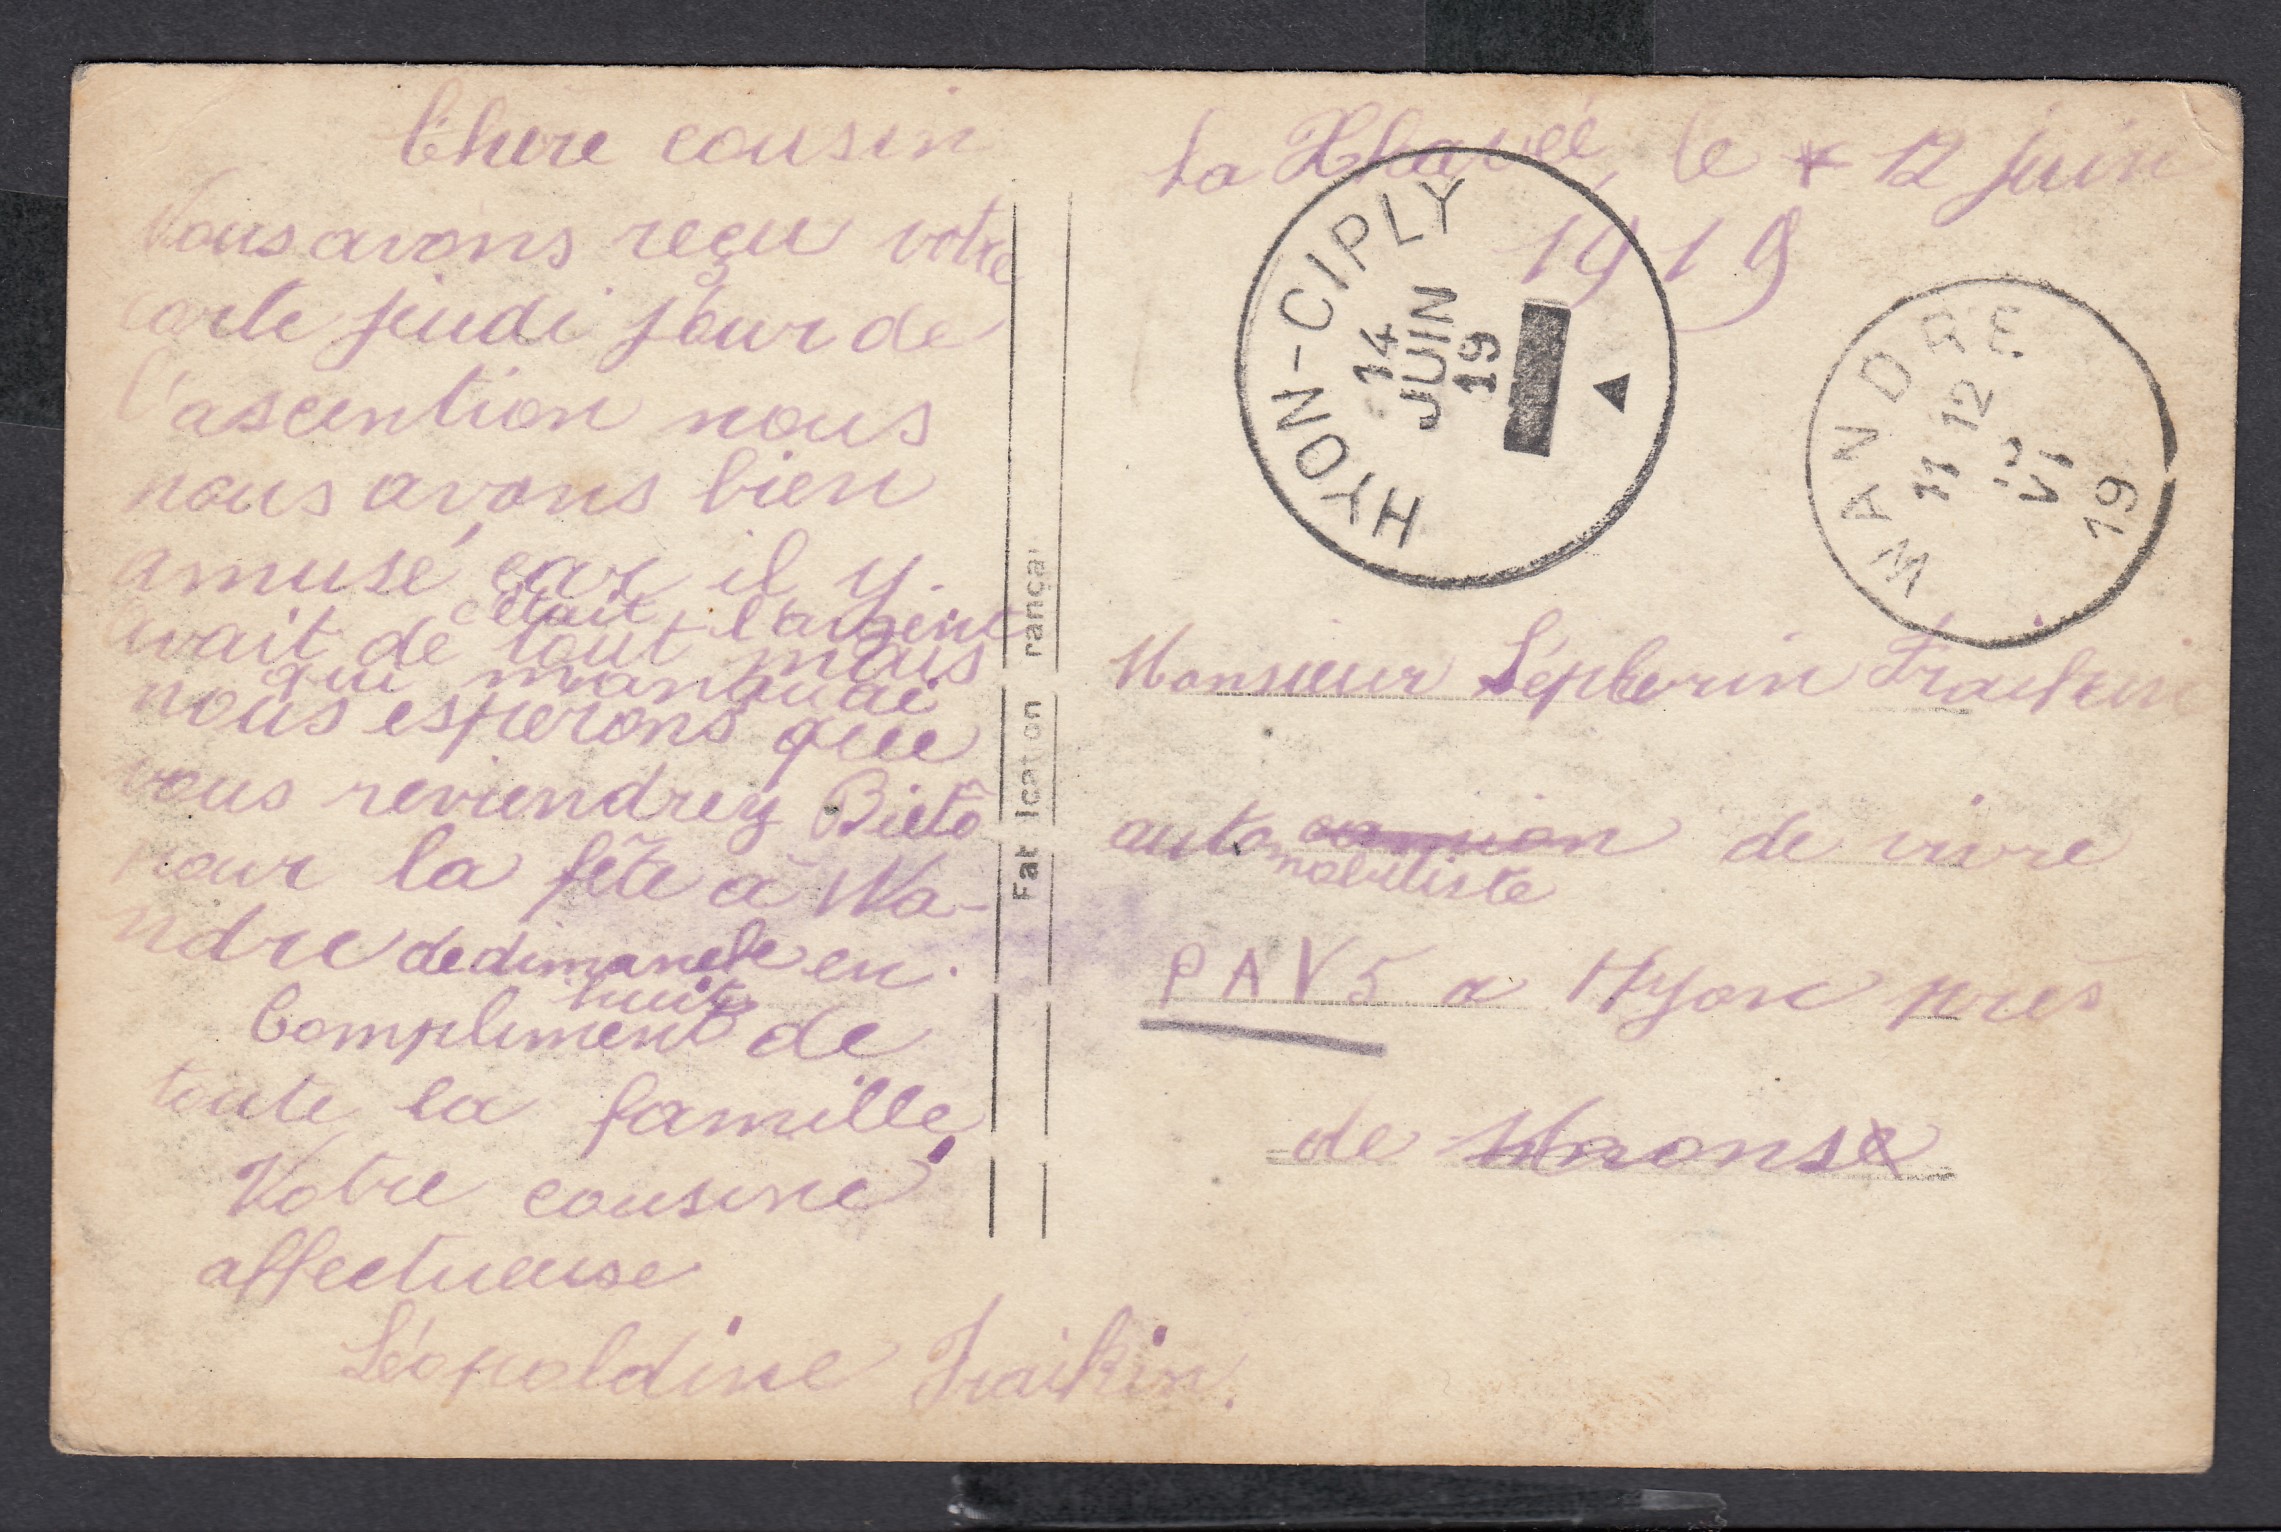 Chere cousin
Nous avons reçu votre
carte jeudi jour de
l'ascention nous
nous avons bien
amusé, car il y
avait de tout mais
c'était l'argent
qui manquai
nous esperons que
vous reviendrez Bietô
pour la fête à Wa-
ndre de dimanche en
huit
Compliment de
toute la famille
Votre cousine
affectueuse
Léopoldine Fraikin.
La Xhavée, le 12 juin
1919
HYON-CIPLY
14
JUIN
19
WANDRE
11 12
13
VI
19
Monsieur Sépherin Fraikin
auto camion de vivre
mobiliste
PAV5 a Hyon près
de Mons
Fab ication rança